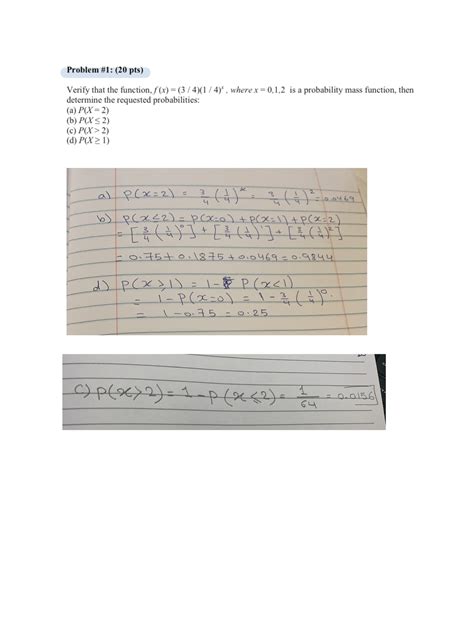 Problem #1: (20 pts)
Verify that the function, f (x) = (3 / 4)(1 / 4)ˣ , where x = 0,1,2 is a probability mass function, then
determine the requested probabilities:
(a) P(X = 2)
(b) P(X ≤ 2)
(c) P(X > 2)
(d) P(X ≥ 1)
a) P(x=2) = 3/4 (1/4)ˣ = 3/4 (1/4)² = 0.0469
b) P(x≤2) = P(x=0) + P(x=1) + P(x=2)
= [3/4 (1/4)⁰] + [3/4 (1/4)¹] + [3/4 (1/4)²]
= 0.75 + 0.1875 + 0.0469 = 0.9844
d) P(x≥1) = 1 - P(x<1)
= 1 - P(x=0) = 1 - 3/4 (1/4)⁰.
= 1 - 0.75 = 0.25
c) P(x>2) = 1 - P(x≤2) = 1/64 = 0.0156